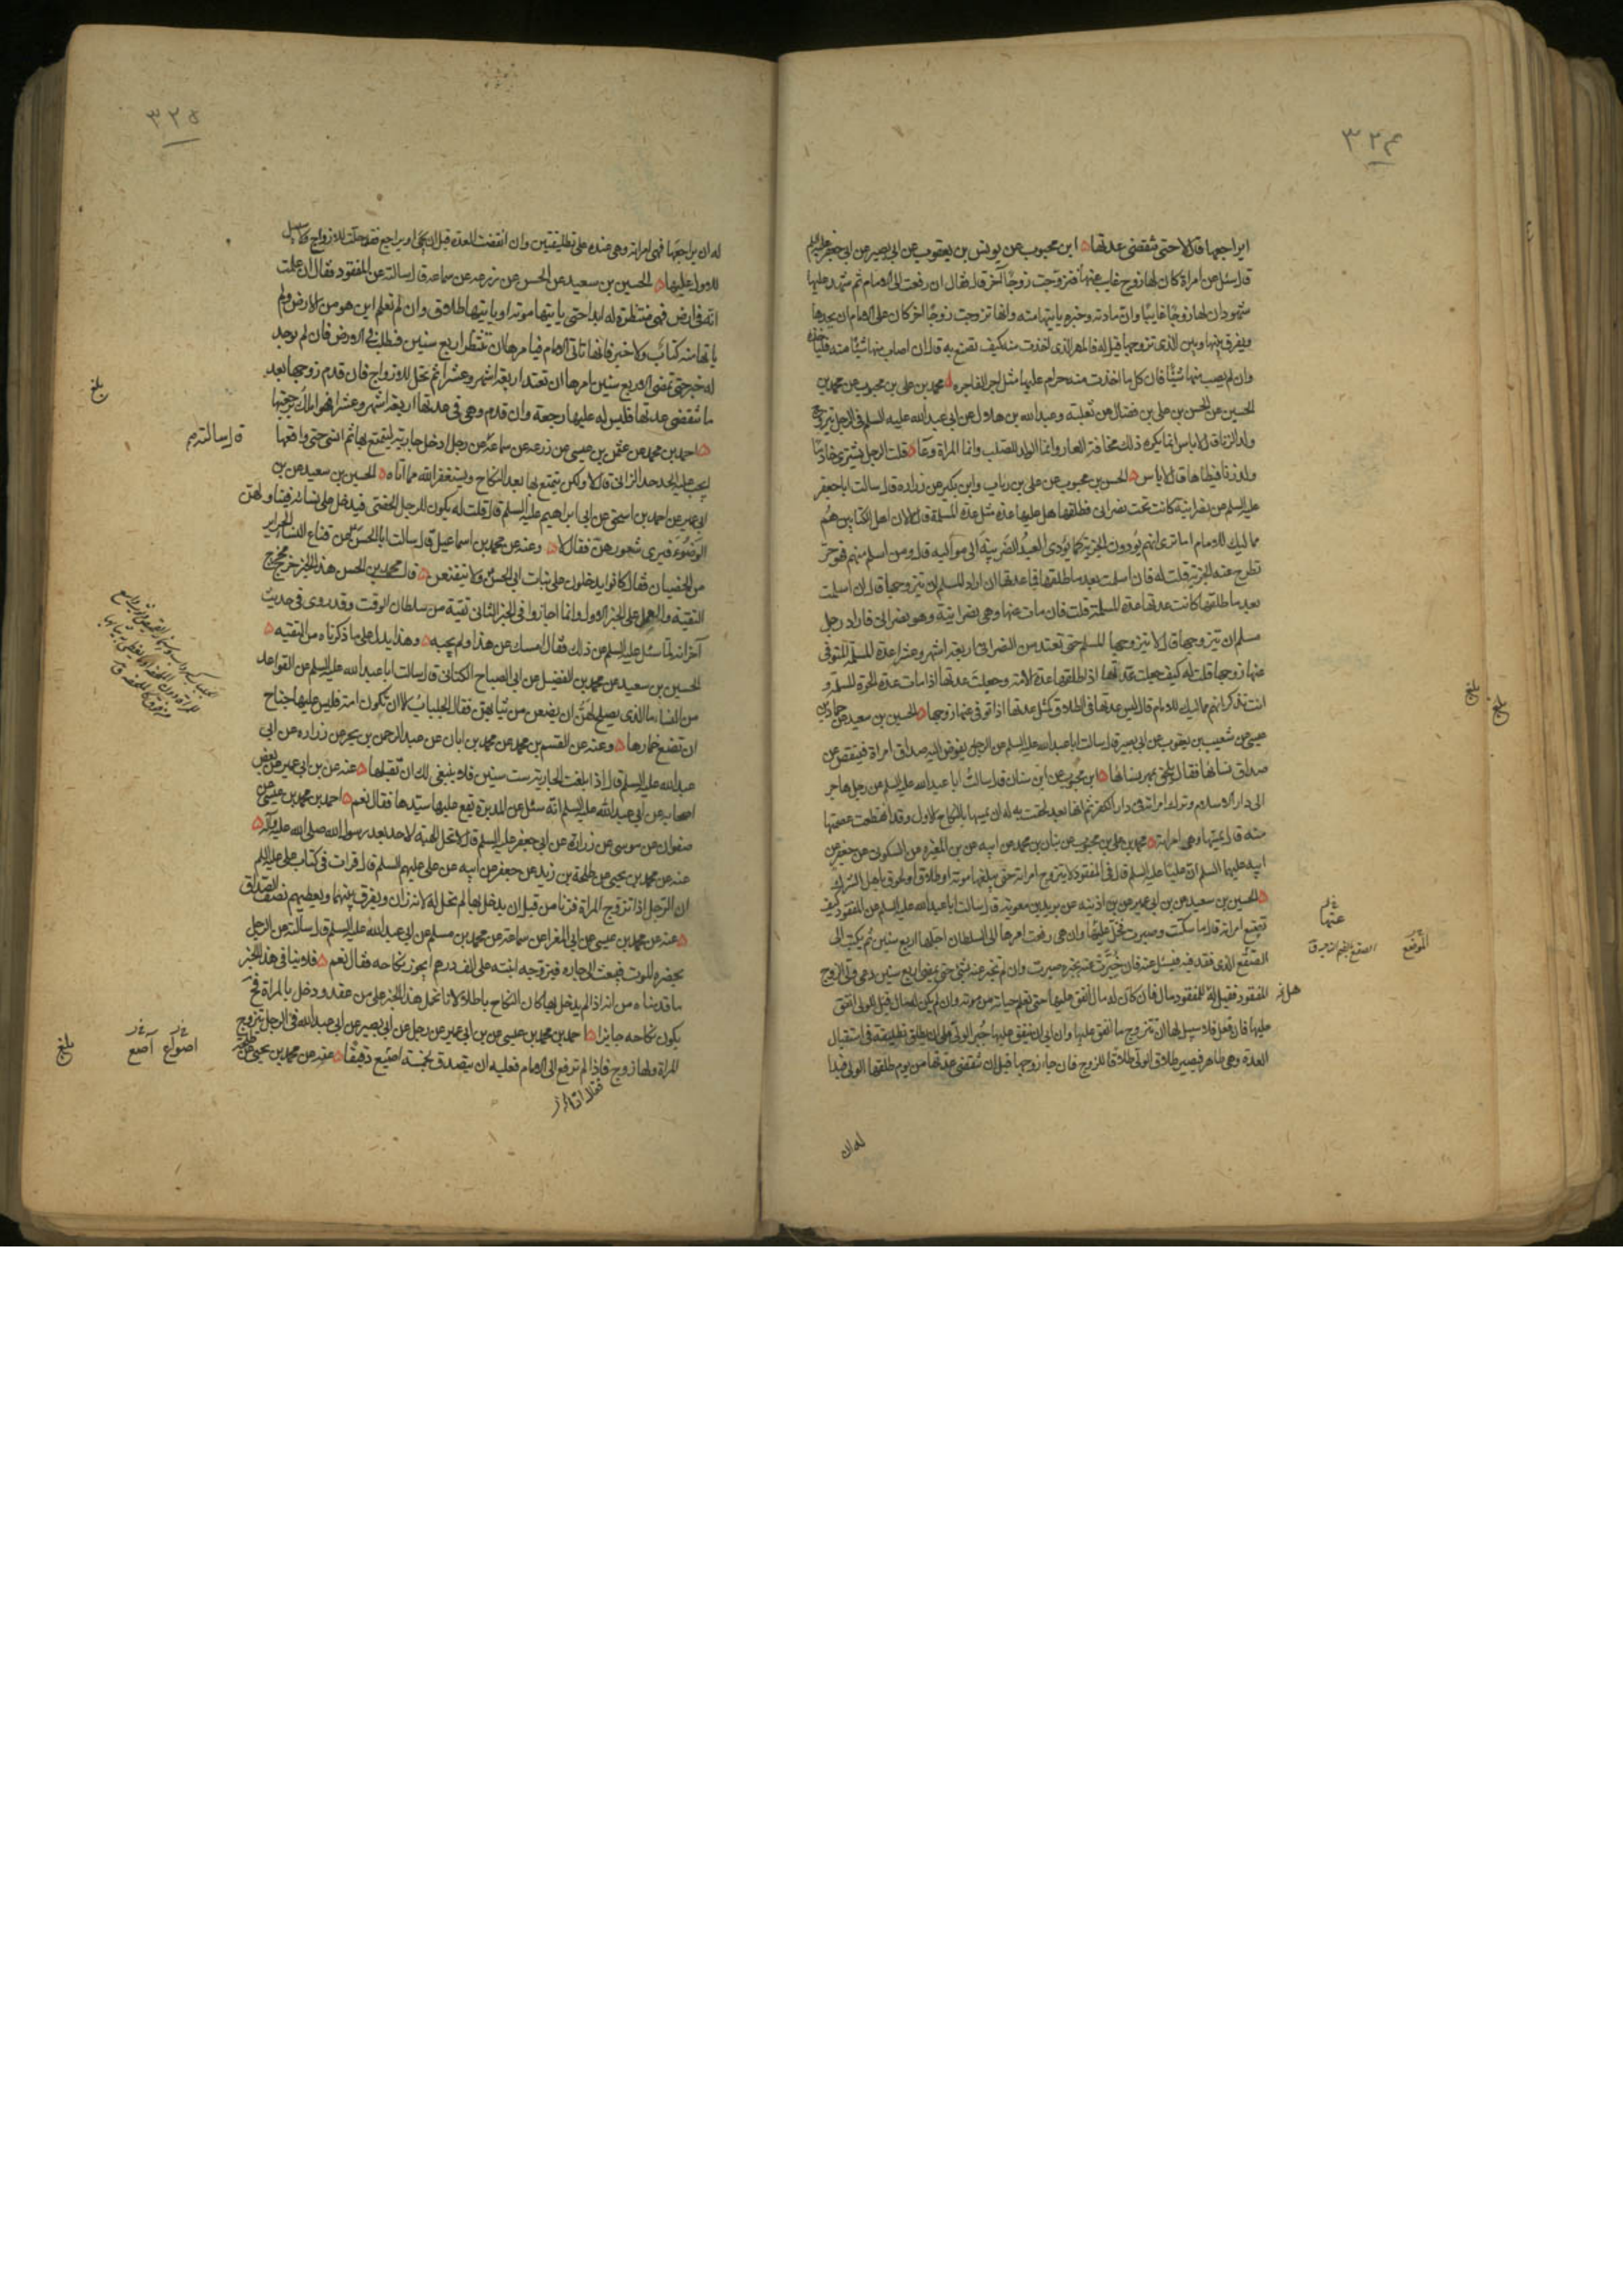 ٣٢٤
ايراجعها قال لا حتى تنقضي عدتها ابن محبوب عن يونس بن يعقوب عن ابي بصير عن ابي جعفر عليه السلم
قال سئل عن امراة كان لها زوج غايب عنها فتزوجت زوجًا آخر قال فقال ان رفعت الى الامام ثم شهد عليها
شهود ان لها زوجًا غايبًا وان مادته وخبره ياتيها منه وانها تزوجت زوجًا آخر كان على الامام ان يحدها
ويفرق بينها وبين الذي تزوجها قيل له فالمهر الذي اخذت منه كيف تصنع به قال ان اصاب منها شيئًا منه فلياخذه
وان لم يصب منها شيئًا فان كل ما اخذت منه حرام عليها مثل اجر الفاجره محمد بن علي بن محبوب عن محمد بن
الحسين عن الحسن بن علي بن فضال عن ثعلبة وعبد الله بن هلال عن ابي عبد الله عليه السلم في الرجل يتزوج
ولد الزنا قال لا باس انما يكره ذلك مخافة العار وانما الولد للصلب وانما المراة وعاء قلت الرجل يشتري خادمًا
ولد زنا فيطاها قال لا باس الحسن بن محبوب عن علي بن رياب وابن بكير عن زراره قال سالت ابا جعفر
عليه السلم عن نصرانية كانت تحت نصراني فطلقها هل عليها عدة مثل عدة المسلمة قال لا لان اهل الكتابين هم
مماليك للامام اما ترى انهم يؤدون الجزية كما يؤدي العبد الضريبة الى مواليه قال ومن اسلم منهم فهو حر
تطرح عنه الجزية قلت له فان اسلمت بعد ما طلقها فما عدتها ان اراد المسلم ان يتزوجها قال ان اسلمت
بعد ما طلقها كانت عدتها عدة المسلمة قلت فان مات عنها وهي نصرانية وهو نصراني فاراد رجل
مسلم ان يتزوجها قال لا يتزوجها المسلم حتى تعتد من النصراني اربعة اشهر وعشرا عدة المسلمة المتوفى
عنها زوجها قلت له كيف جعلت عدتها اذا طلقها عدة الامة وجعلت عدتها اذا مات عدة الحرة المسلمة و
انت تذكر انهم مماليك للامام قال ليس عدتها في الطلاق كمثل عدتها اذا توفي عنها زوجها الحسين بن سعيد عن حماد بن
عيسى عن شعيب بن يعقوب عن ابي بصير قال سالت ابا عبد الله عليه السلم عن الرجل يفوض اليه صداق امراة فينقص عن
صداق نسائها فقال يلحق بمهر نسائها ابن محبوب عن ابن سنان قال سالت ابا عبد الله عليه السلم عن رجل هاجر
الى دار الاسلام وترك امراته في دار الكفر ثم انها بعد لحقت به له ان يمسكها بالنكاح الاول وقد انقطعت عصمتها
منه قال يمسكها وهي امراته محمد بن علي بن محبوب عن بنان بن محمد عن ابيه عن بن المغيره عن السكوني عن جعفر عن
ابيه عليهما السلم ان عليًا عليه السلم قال في المفقود لا يتزوج امراته حتى يبلغها موته او طلاق او لحوق باهل الشرك
الحسين بن سعيد عن بن ابي عمير عن بن اذينه عن بريد بن معوية قال سالت ابا عبد الله عليه السلم عن المفقود كيف
تصنع امراته قال ما سكتت وصبرت يخلى عليها وان هي رفعت امرها الى السلطان اجلها اربع سنين ثم يكتب الى
الصقع الذي فقد فيه فيسئل عنه فان خبرت عنه بخبر صبرت وان لم تخبر عنه بشئ حتى يمضي اربع سنين دعى ولي الزوج
المفقود فقيل له هل للمفقود مال فان كان له مال انفق عليها حتى تعلم حياته من موته وان لم يكن له مال قيل للولي انفق
عليها فان فعل فلا سبيل لها ان تتزوج ما انفق عليها وان ابى ان ينفق عليها جبر الولي على ان يطلق تطليقة في استقبال
العدة وهي طاهر فيصير طلاق الولي طلاقا للزوج فان جاء زوجها قبل ان تنقضي عدتها من يوم طلقها الولي فبدا
له ان
بلغ
بلغ
عنها
الموضع
الصقع بالضم الناحية ق
هل
٣٢٥
له ان يراجعها فهي امراته وهي عنده على تطليقتين وان انقضت العدة قبل ان يجئ او يراجع فقد حلت للازواج ولا سبيل
للاول عليها الحسين بن سعيد عن الحسن عن زرعه عن سماعه قال سالته عن المفقود فقال ان علمت
انه في ارض فهي منتظرة له ابدا حتى ياتيها موته او ياتيها طلاق وان لم تعلم اين هو من الارض ولم
ياتها منه كتاب ولا خبر فانها تاتي الامام فيامرها ان تنتظر اربع سنين فيطلب في الارض فان لم يوجد
له خبر حتى تمضي الاربع سنين امرها ان تعتد اربعة اشهر وعشرا ثم تحل للازواج فان قدم زوجها بعد
ما تنقضي عدتها فليس له عليها رجعة وان قدم وهي في عدتها اربعة اشهر وعشرا فهو املك برجعتها
احمد بن محمد عن عثمن بن عيسى عن زرعه عن سماعة عن رجل ادخل جارية ليتمتع بها ثم انسي حتى واقعها
ايجب عليه الحد حد الزاني قال لا ولكن يتمتع بها بعد النكاح ويستغفر الله مما اتاه الحسين بن سعيد عن بن
ابي عمير عن احمد بن اسحق عن ابي ابراهيم عليه السلم قال قلت له يكون للرجل الخصي فيدخل على نسائه فيناولهن
الوضوء فيرى شعورهن فقال لا وعنه عن محمد بن اسماعيل قال سالت ابا الحسن ع عن قناع النساء الحراير
من الخصيان فقال كانوا يدخلون على بنات ابي الحسن ولا يتقنعن قال محمد بن الحسن هذا الخبر خرج مخرج
التقية والعمل على الخبر الاول وانما اجازوا في الخبر الثاني تقية من سلطان الوقت وقد روى في حديث
آخر انه لما سئل عليه السلم عن ذلك فقال امسك عن هذا ولم يجبه وهذا يدل على ما ذكرناه من التقيه
الحسين بن سعيد عن محمد بن الفضيل عن ابي الصباح الكناني قال سالت ابا عبد الله عليه السلم عن القواعد
من النساء ما الذي يصلح لهن ان يضعن من ثيابهن فقال الجلباب الا ان تكون امة فليس عليها جناح
ان تضع خمارها وعنه عن القسم بن محمد عن محمد بن ابان عن عبد الرحمن بن بحر عن زراره عن ابي
عبد الله عليه السلم قال اذا بلغت الجارية ست سنين فلا ينبغي لك ان تقبلها عنه عن بن ابي عمير عن بعض
اصحابه عن ابي عبد الله عليه السلم انه سئل عن المدبرة يقع عليها سيدها فقال نعم احمد بن محمد بن عيسى عن
صفوان عن موسى عن زرارة عن ابي جعفر عليه السلم قال لا تحل الهبة لاحد بعد رسول الله صلى الله عليه وآله
عنه عن محمد بن يحيى عن طلحة بن زيد عن جعفر عن ابيه عن علي عليهم السلم قال قرات في كتاب علي عليه السلم
ان الرجل اذا تزوج المراة فزنا من قبل ان يدخل بها لم تحل له لانه زان ويفرق بينهما ويعطيهم نصف الصداق
عنه عن محمد بن عيسى عن ابي المغرا عن سماعة عن محمد بن مسلم عن ابي عبد الله عليه السلم قال سالته عن الرجل
يحضره الموت فبعث الى جاره فيزوجه ابنته على الف درهم ايجوز نكاحه فقال نعم فلا ينافي هذا الخبر
ما قدمناه من انه اذا لم يدخل بها كان النكاح باطلا لانا نحمل هذا الخبر على من عقد ودخل بالمراة فح
يكون نكاحه جايزا احمد بن محمد بن عيسى عن بن ابي عمير عن رجل عن ابي بصير عن ابي عبد الله في الرجل يتزوج
المراة ولها زوج فاذا لم ترفع الى الامام فعليه ان يتصدق بخمسة اصيع دقيقًا عنه عن محمد بن يحيى عن طلحة
بلغ
قال سالته
اصواع آصع
بلغ